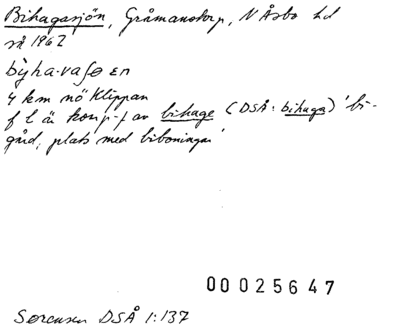 Bihagasjön, Gråmanstorp, N Åsbo hd
sk 1962
4 km nö Klippan
f l är konj-f av bihage (DSÅ: bihaga) 'bi-
gård, plats med biboningar'
00025647
Sørensen DSÅ 1:137